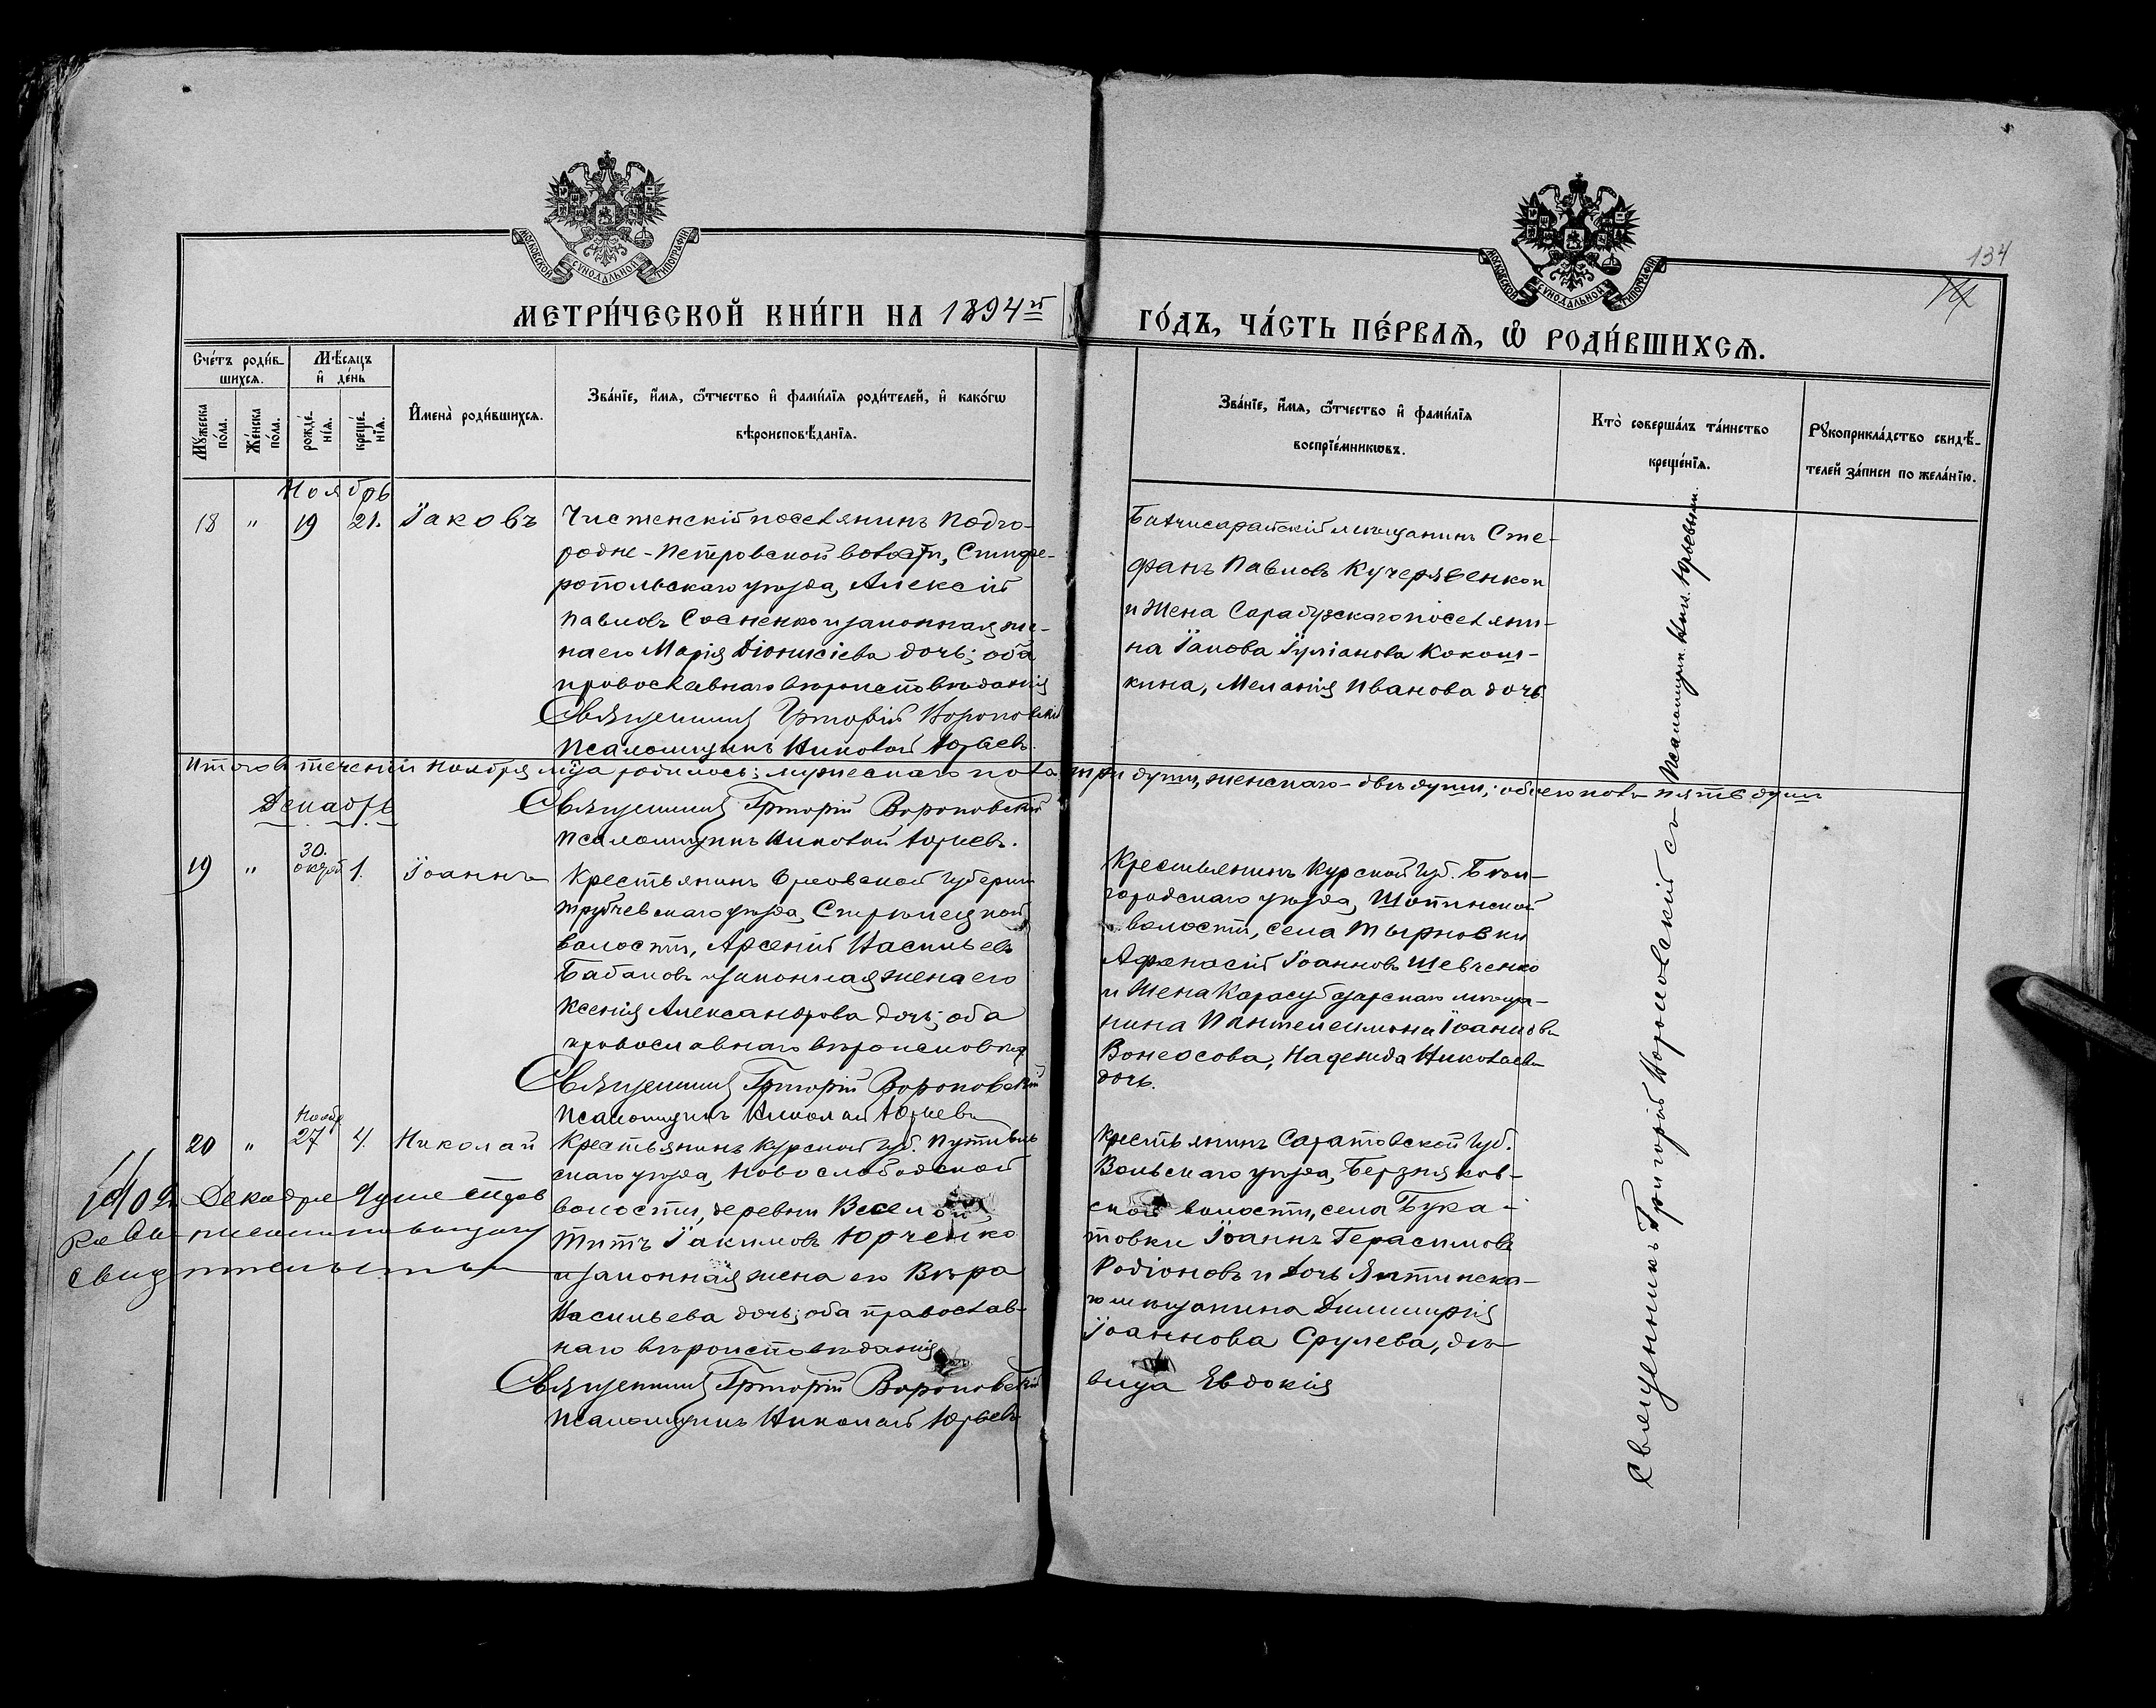 МОСКОВСКОЙ СѴНОДАЛЬНОЙ ТИПОГРАФІИ
МОСКОВСКОЙ СѴНОДАЛЬНОЙ ТИПОГРАФІИ
134
МЕТРИ́ЧЕСКОЙ КНИ́ГИ НА 1894й
ГО́ДЪ, ЧА́СТЬ ПЕ́РВАѦ, Ѡ҆ РОДИ́ВШИХСѦ.
Сче́тъ роди́в-
шихсѧ.
Мѣ́сѧцъ
и҆ де́нь
Мꙋ́жеска по́ла.
Же́нска по́ла.
рожде́нїѧ.
креще́нїѧ.
И҆мена̀ роди́вшихсѧ.
Зва́нїе, и҆́мѧ, ѻ҆́тчество и҆ фами́лїѧ роди́телей, и҆ како́гѡ
вѣроисповѣ́данїѧ.
Зва́нїе, и҆́мѧ, ѻ҆́тчество и҆ фами́лїѧ
воспрїе́мникѡвъ.
Кто̀ соверша́лъ та́инство
креще́нїѧ.
Рꙋкоприкла́дство свидѣ́-
телей за́писи по жела́нїю.
Ноябрь
18 " 19 21. Іаковъ
Чистенскій поселянинъ Подго-
родне-Петровской волости, Симфе-
ропольскаго уѣзда, Алексій
Павловъ Сосненко и законная же-
на его Марія Діонисіева дочь; оба
православнаго вѣроисповѣданія
Священникъ Григорій Вороновскій
Псаломщикъ Николай Юрьевъ.
Бахчисарайскій мѣщанинъ Сте-
фанъ Павловъ Кучерявенко
и жена Сарабузскаго поселяни-
на Іакова Іуліанова Кокош-
кина, Меланія Иванова дочь
Итого въ теченіи ноября мѣсяца родилось: мужескаго пола три души, женскаго - двѣ души; обоего пола пять душъ
Декабрь
Священникъ Григорій Вороновскій
Псаломщикъ Николай Юрьевъ.
19 " 30. 1. Іоаннъ
Крестьянинъ Орловской губерніи
Трубчевскаго уѣзда,
волости, Арсеній Васильевъ
Бабаковъ и законная жена его
Ксенія Александрова дочь; оба
православнаго
Священникъ Григорій Вороновскій
Псаломщикъ Николай Юрьевъ
Крестьянинъ Курской губ. Бѣл-
городскаго уѣзда, Шопинской
волости, села Тырновки
Афанасій Іоанновъ Шевченко
и жена Карасубазарскаго мѣща-
нина Пантелеимона Іоаннова
Вонеосова, Надежда Николаева
дочь.
20 " Ноябр. 27 4. Николай
Крестьянинъ Курской губ. Путивль-
скаго уѣзда, Новослободской
волости, деревни Веселой
Титъ Іакимовъ Юрченко
и законная жена его Вѣра
Васильева дочь; оба православ-
наго вѣроисповѣданія
Священникъ Григорій Вороновскій
Псаломщикъ Николай Юрьевъ
Крестьянинъ Саратовской губ.
Вольскаго уѣзда, Березняков-
ской волости, села Бука-
товки Іоаннъ Герасимовъ
Родіоновъ и дочь Ялтинска-
го мѣщанина Димитрія
Іоаннова Срулева, дѣ-
вица Евдокія
Декабря
Священникъ Григорій Вороновскій съ Псаломщик. Ник. Юрьевым.